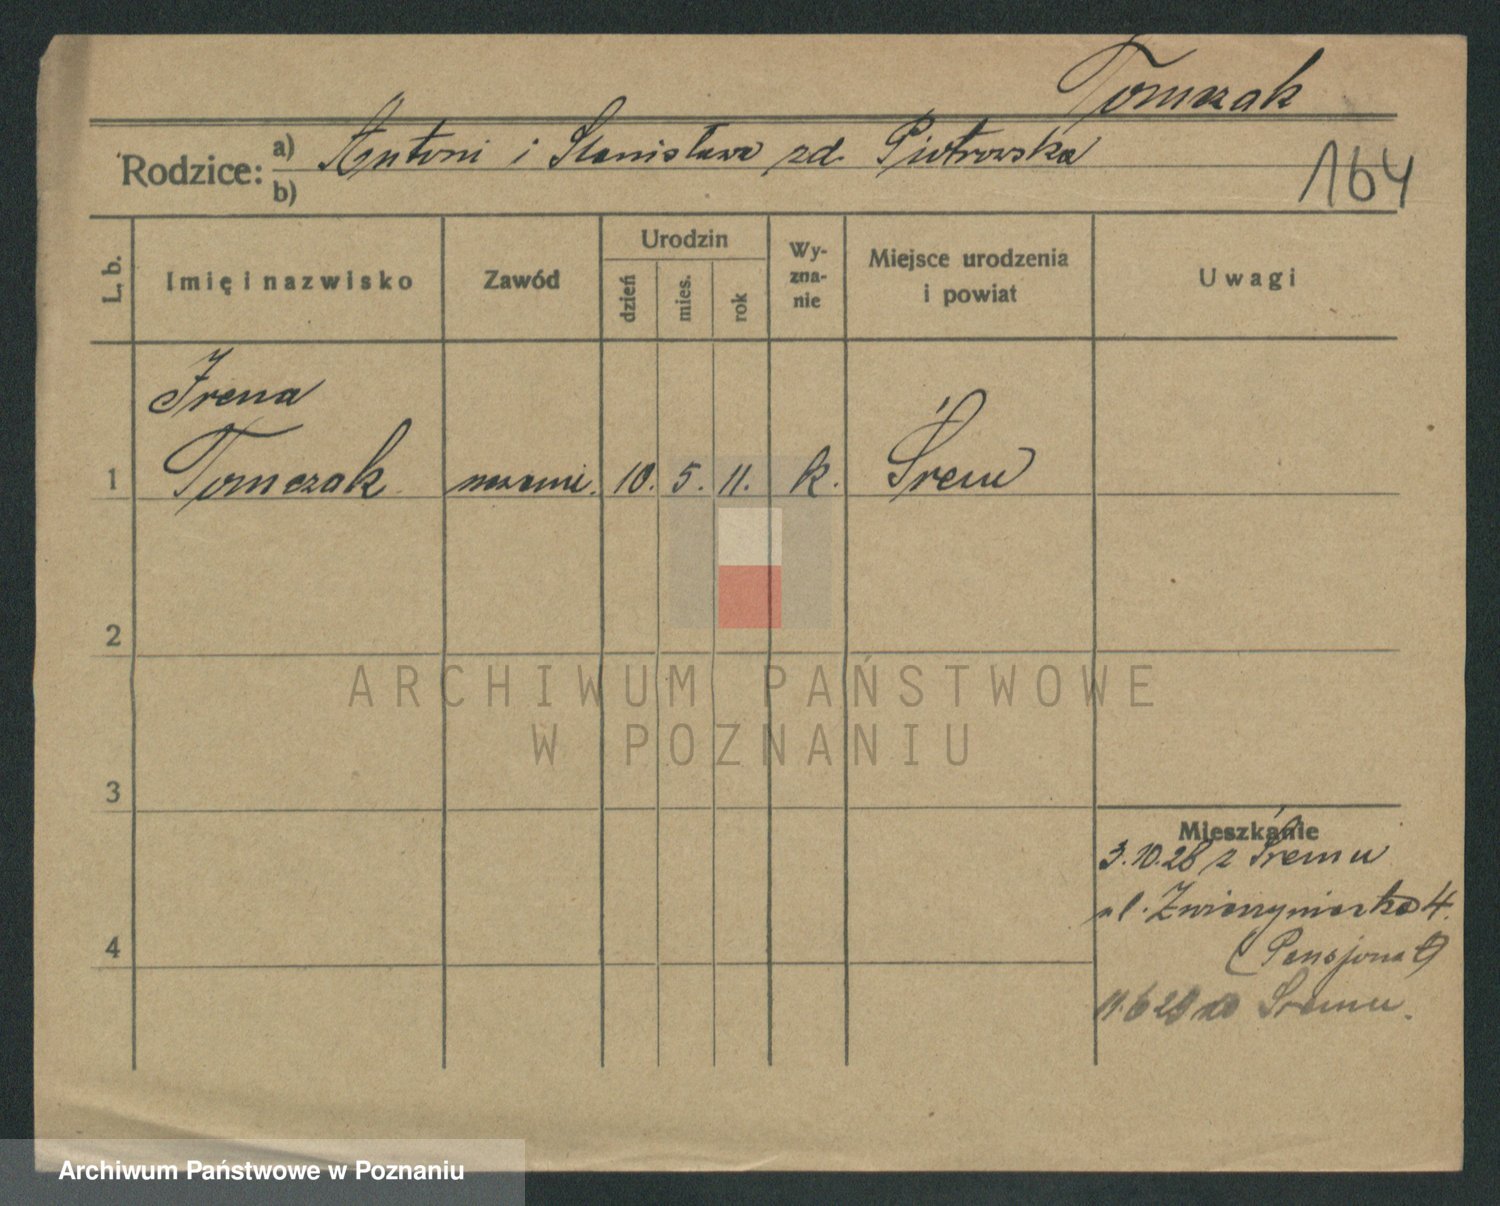 Tomczak
Rodzice: a) Antoni i Stanisława zd. Piotrowska
b)
164
L. b.
Imię i nazwisko
Zawód
Urodzin
dzień
mies.
rok
Wy-
zna-
nie
Miejsce urodzenia
i powiat
Uwagi
Irena
1 Tomczak 10. 5. 11. k. Śrem
2
3
4
Mieszkanie
3.10.28 z Śremu
ul. Zwierzyniecka 4.
(Pensjonat)
11.6 29 do Śremu.
ARCHIWUM PAŃSTWOWE
W POZNANIU
Archiwum Państwowe w Poznaniu